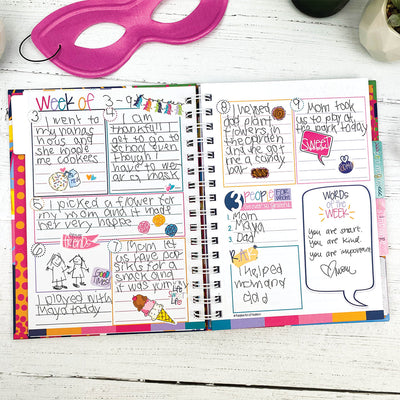 Week of 3-9
3 I went to
my nanas
hous and
she made
me cookees
4 I am
thankfull I
get to go to
school even
though I
have to we-
ar a mask
5 I picked a flower for
my mom and it made
her very happe
friends
6
GOOD
TIMES!
I played with
Maya today
7 Mom let
us have pop-
sikls for a
snack and it
was yummy
Life
8 I helped
dad plant
flowers in
the garden
and we got
me a candy
bar
9 Mom took
us to play at
the park today
SWEET
3 people
1. Mom
2. Maya
3. Dad
I helped
mom and
dad
WORDS
OF THE
WEEK
you are smart.
you are kind.
you are important.
♡ Mom